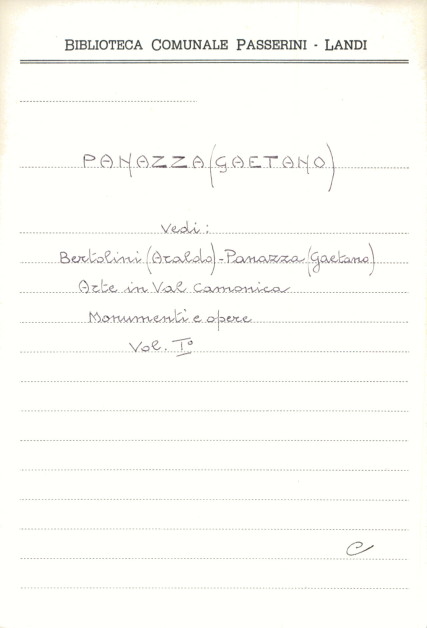 BIBLIOTECA COMUNALE PASSERINI - LANDI
PANAZZA (GAETANO)
Vedi:
Bertolini (Araldo) - Panazza (Gaetano)
Arte in Val Camonica
Monumenti e opere
Vol. I°
C